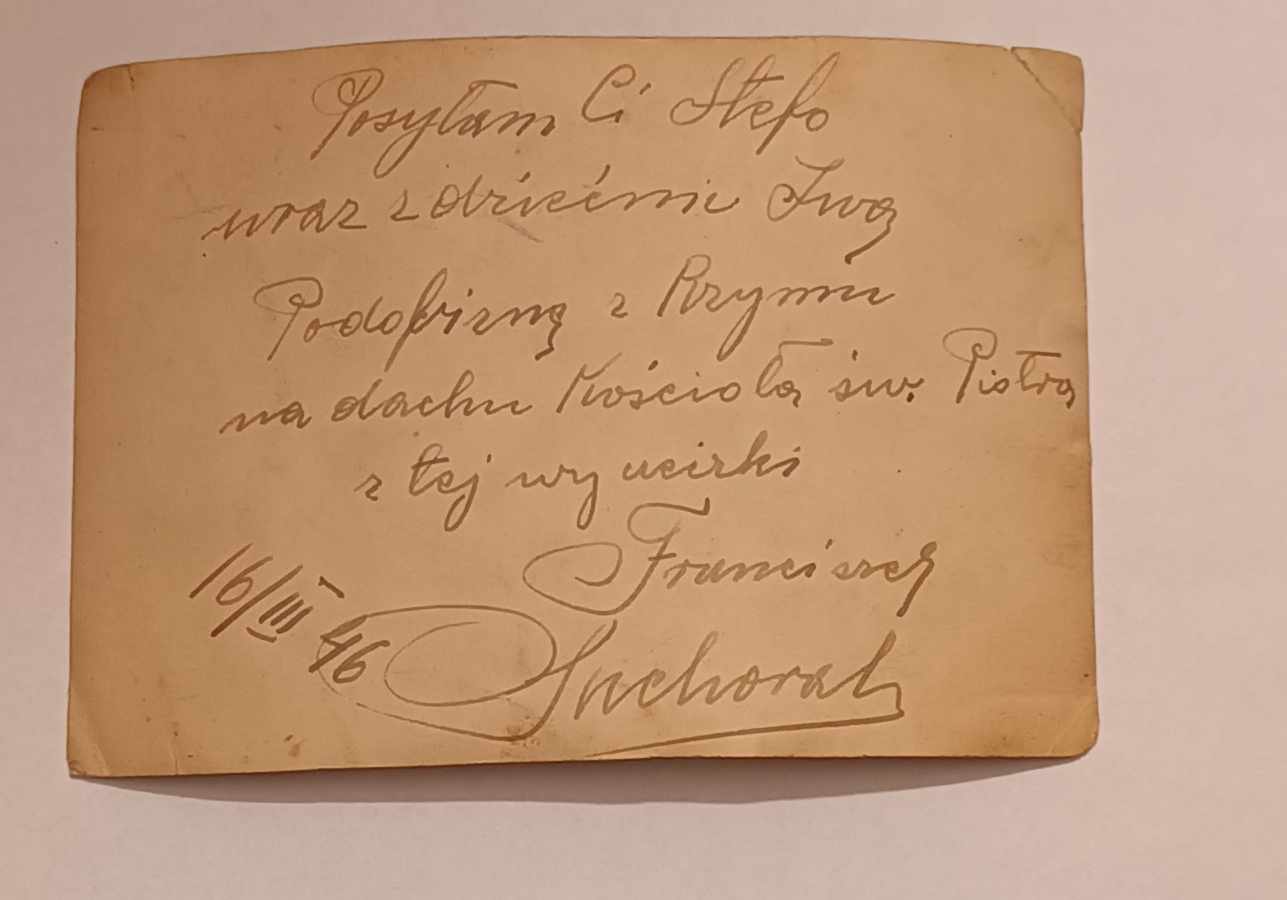 Posyłam Ci Stefo
wraz z dziećmi Swą
Podobizną z Rzymu
na dachu Kościoła św. Piotra
z tej wycieczki
Franciszek
16/III 46
Suchoral